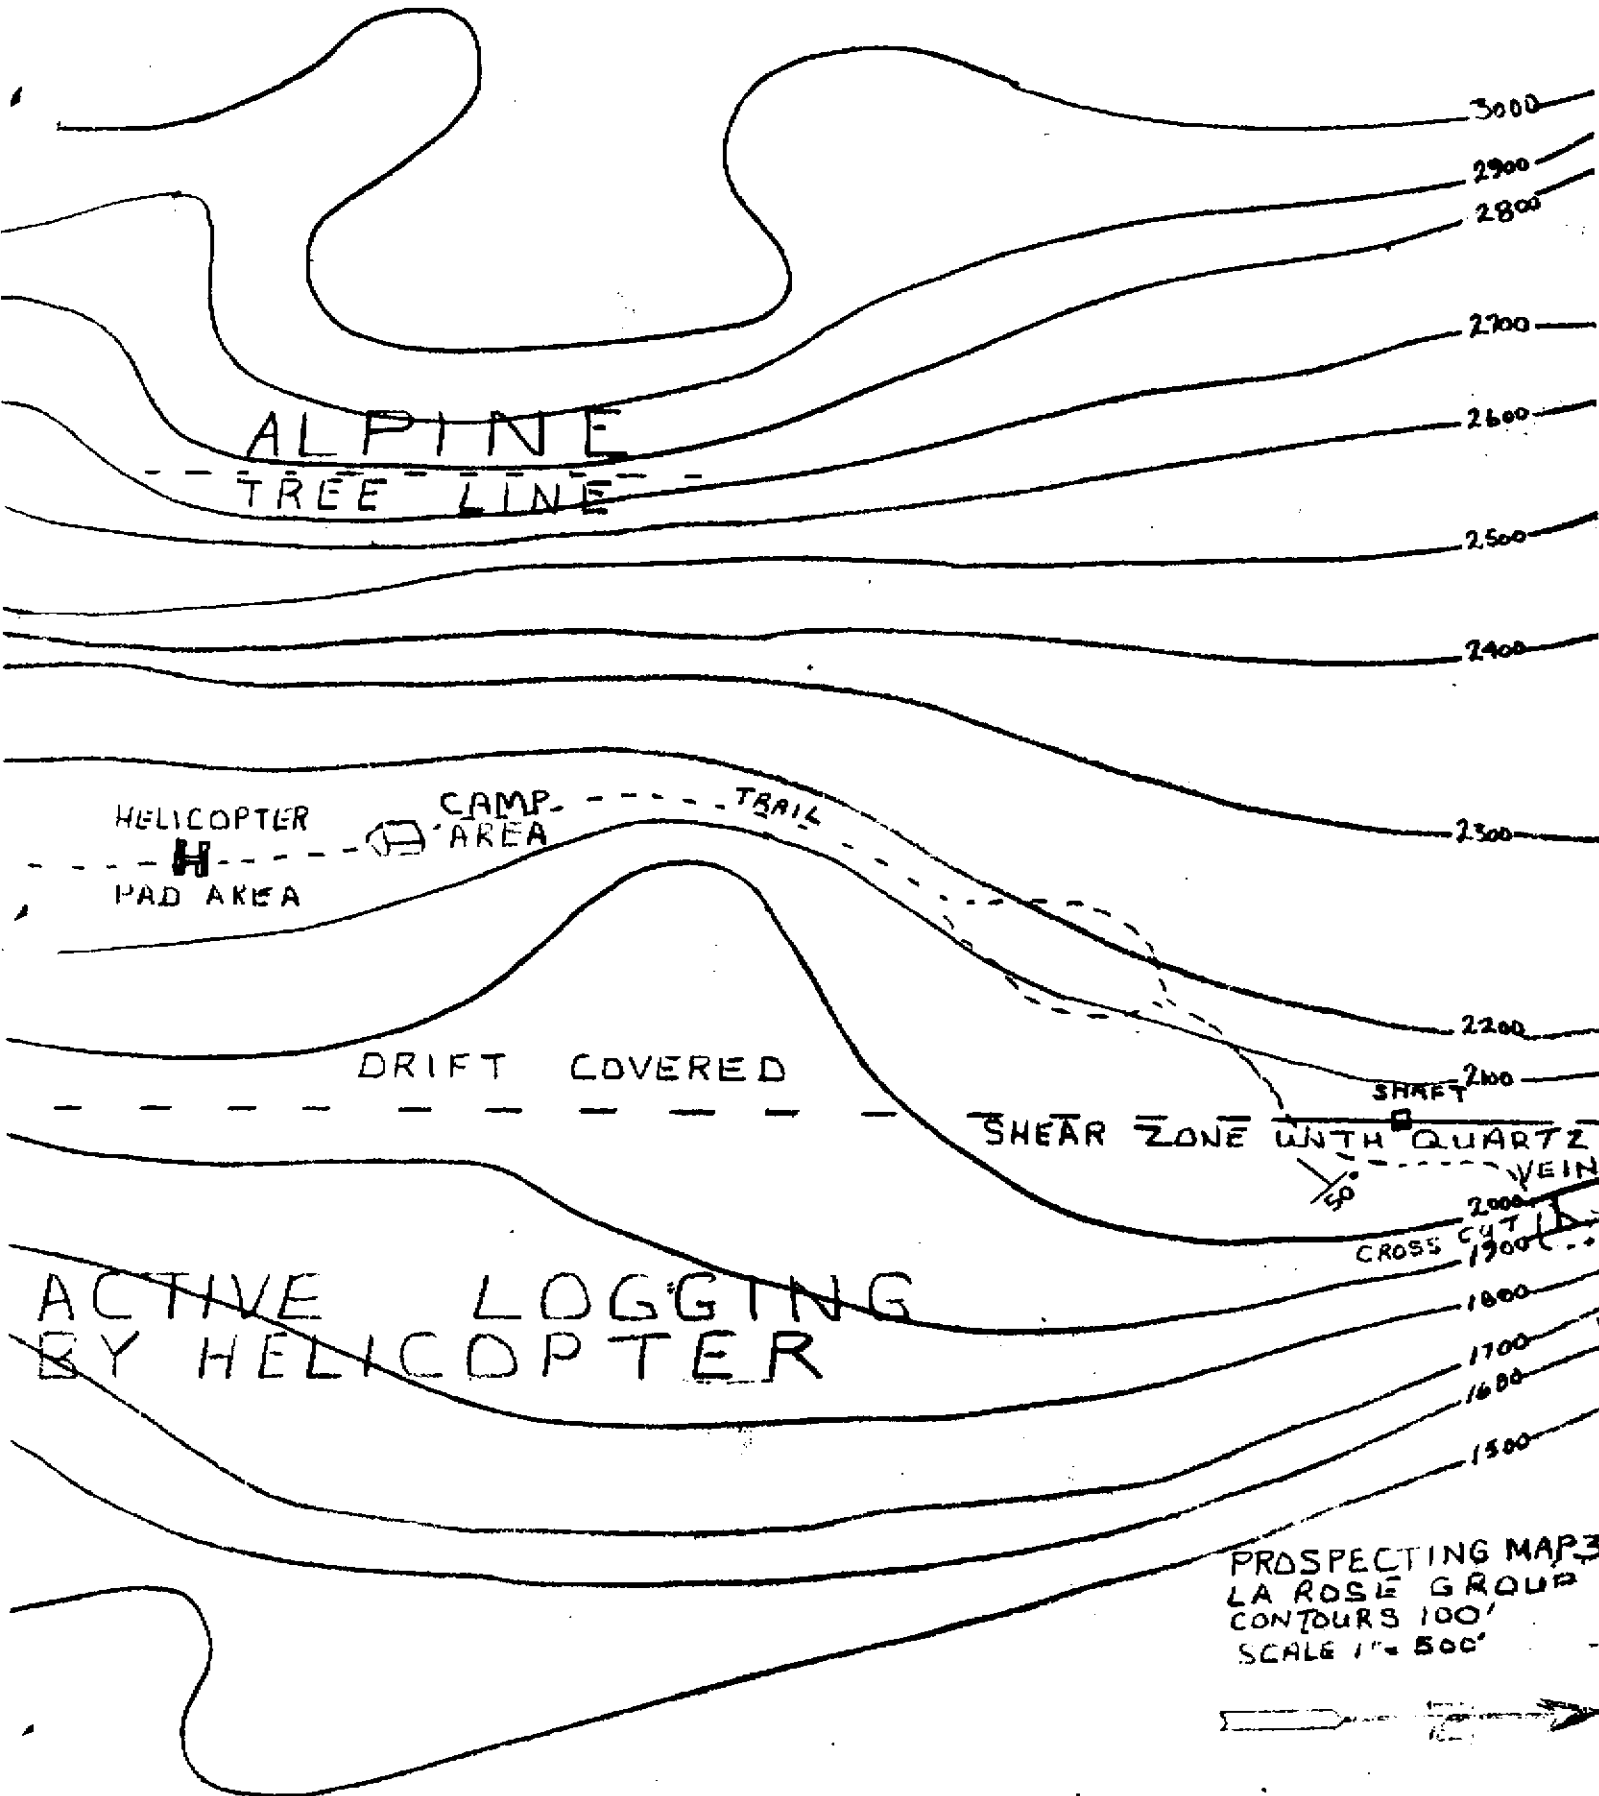 3000
2900
2800
2700
2600
ALPINE
TREE LINE
2500
2400
HELICOPTER
H
PAD AREA
CAMP
AREA
TRAIL
2300
2200
2100
DRIFT COVERED
SHAFT
SHEAR ZONE WITH QUARTZ
VEIN
50°
2000
CROSS CUT
1900
1800
1700
1600
1500
ACTIVE LOGGING
BY HELICOPTER
PROSPECTING MAP 3
LA ROSE GROUP
CONTOURS 100'
SCALE 1" = 500'